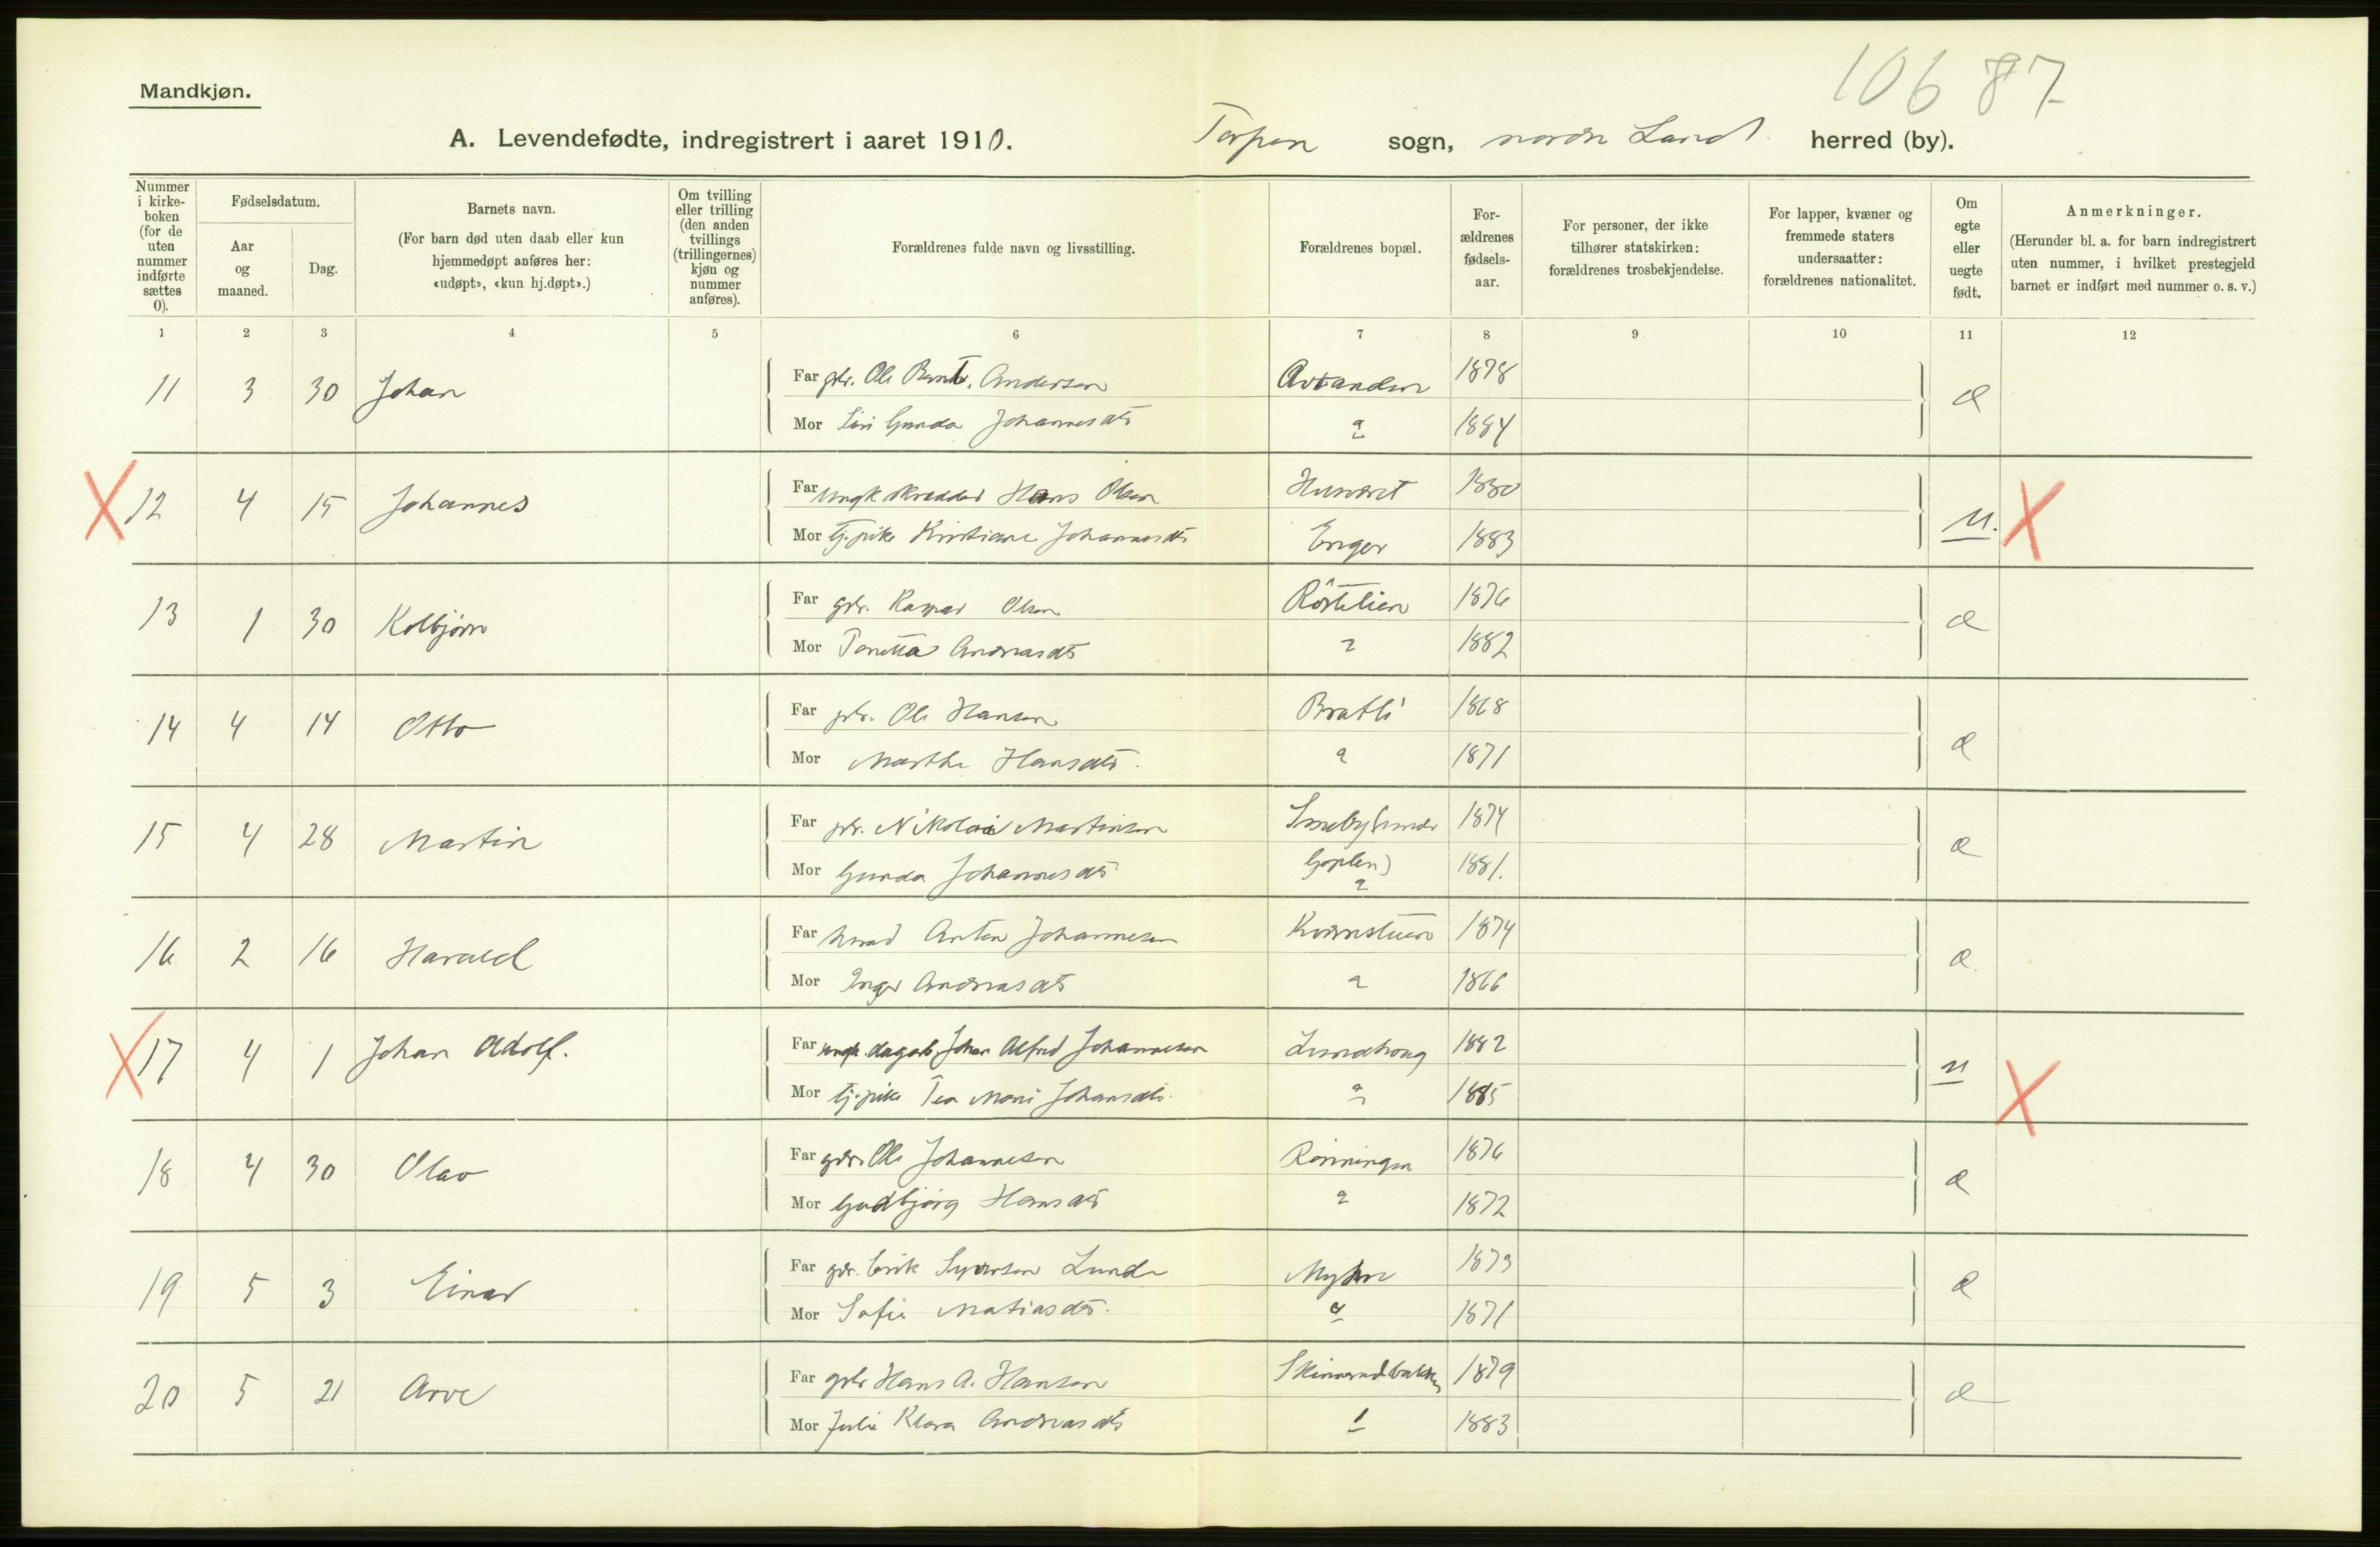 106 87
Mandkjøn.
A. Levendefødte, indregistrert i aaret 1910. Torpen sogn, nordre Land herred (by).
Nummer i kirkeboken (for de uten nummer indførte sættes 0).
Fødselsdatum.
Aar og maaned.
Dag.
Barnets navn.
(For barn død uten daab eller kun hjemmedøpt anføres her: «udøpt», «kun hj.døpt».)
Om tvilling eller trilling (den anden tvillings (trillingernes) kjøn og nummer anføres).
Forældrenes fulde navn og livsstilling.
Forældrenes bopæl.
Forældrenes fødselsaar.
For personer, der ikke tilhører statskirken: forældrenes trosbekjendelse.
For lapper, kvæner og fremmede staters undersaatter: forældrenes nationalitet.
Om egte eller uegte født.
Anmerkninger.
(Herunder bl. a. for barn indregistrert uten nummer, i hvilket prestegjeld barnet er indført med nummer o. s. v.)
1 2 3 4 5 6 7 8 9 10 11 12
11 3 30 Johan Far gbr. Ole Bernt. Andersen 1878 æ
Mor Siri Gunda Johannesdtr 1884
X 12 4 15 Johannes Far ungk skrædder Hans Olsen 1880 u. X
Mor tj.pike Kristiane Johannesdtr Enger 1883
13 1 30 Kolbjørn Far gbr. Kaspar Olsen Röstelien 1876 æ
Mor Tonetta Andreasdtr 1882
14 4 14 Otto Far gbr. Ole Hansen Bratli 1868 æ
Mor Marthe Hansdtr. 1871
15 4 28 Martin Far gbr. Nikolai Martinsen 1874 æ
Mor Gunda Johannesdtr Goplen) 1881.
16 2 16 Harald Far Anton Johannesen Kværnstuen 1874 æ.
Mor Inger Andreasdtr 1866
X 17 4 1 Johan Adolf. Far ungk. dagarb. Johan Alfred Johannesen Lundhaug 1882 u X
Mor tj.pike Tea Marie Johansdtr. 1885
18 4 30 Olav Far gbr. Ole Johannesen Rønningen 1876 æ
Mor Gudbjørg Hansdtr 1872
19 5 3 Einar Far gbr. Erik Syversen Lunde Myhre 1873 æ
Mor Sofie Matiasdtr. 1871
20 5 21 Arve Far gbr Hans A. Hansen Skinnerudbakken 1879 æ
Mor Julie Klara Andreasdtr 1883